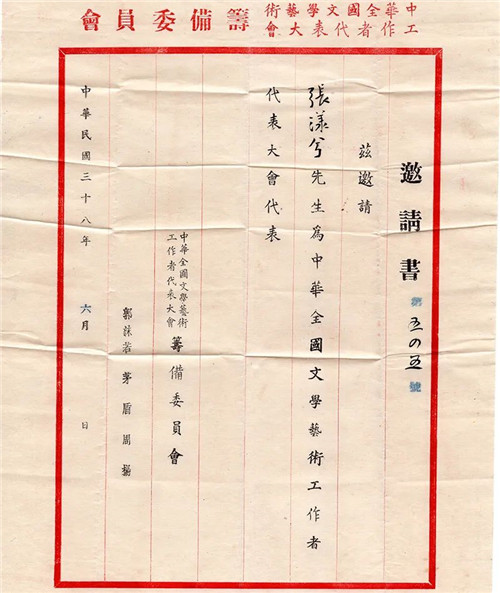 中華全國文學藝術
工作者代表大會
籌備委員會
邀請書 第五〇五號
茲邀請
張漾兮先生為中華全國文學藝術工作者
代表大會代表
中華全國文學藝術
工作者代表大會
籌備委員會
郭沫若 茅盾 周揚
中華民國三十八年 六月 日